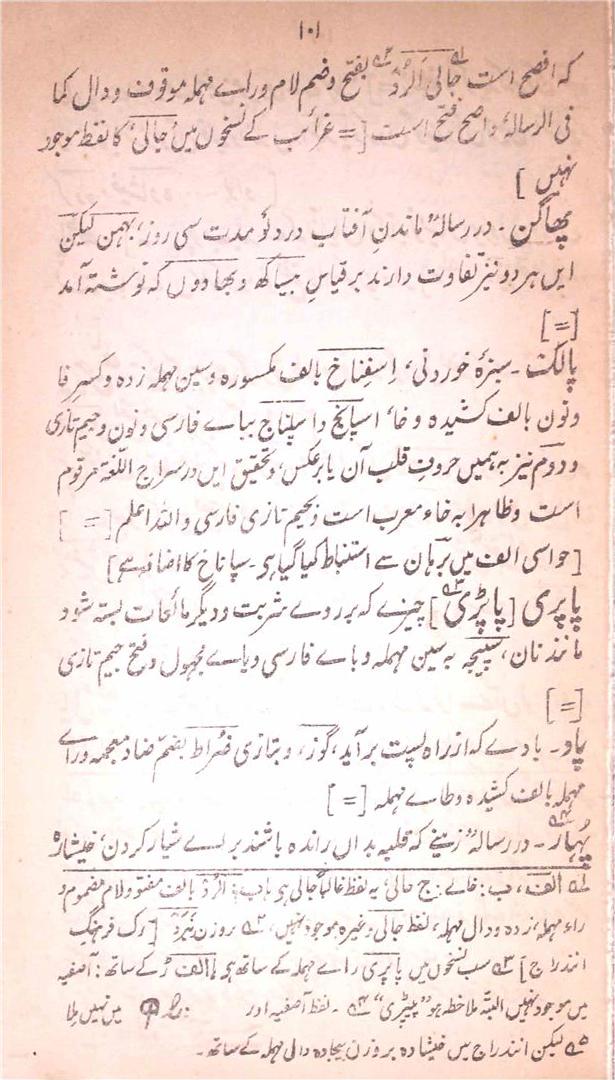 ۱۰۱
که افصح است جالی اَلرُد بفتح وضم لام وراے مہملہ موقوف ودال کما
فی الرسالہٗ واصح فتح است [= غرائب کے نسخوں میں جالی، کا لفظ موجود
نہیں ]
پھاگن ۔ در رسالہٗ ماندنِ آفتاب در دلو مدت سی روز، بہمن لیکن
ایں ہر دو نیز تفاوت دارند بر قیاسِ بیساکھ وبھادوں کہ نوشتہ آمد
[=]
پالک ۔ سبزۂ خوردنی، اِسفِناخ بالف مکسورہ وسین مہملہ زدہ وکسرِ فا
ونون بالف کشیدہ وخا، اسپانج واسپناج بباے فارسی ونون وجیم تازی
ودوم نیز بہ ہمیں حروف قلب آن یا برعکس، وتحقیق ایں در سراج اللّغۃ مرقوم
است وظاہرا بہ خاء معرب است وبجیم تازی فارسی واللہ اعلم [=]
[حواسی الف میں برہان سے استنباط کیا گیا ہی ۔ سپاناخ کا اضافہ ہے]
پاپری [پاپڑی] چیزے کہ بر روے شربت ودیگر مائعات بستہ شود
مانند نان، سپیجہ بہ سین مہملہ وباے فارسی ویاے مجہول وفتح جیم تازی
[=]
پاو ۔ بادے کہ از راہ پست بر آید، گوز، وبتازی ضُراط بضم ضاد معجمہ وراے
مہملہ بالف کشیدہ وطاے مہملہ [=]
پُہار ۔ در رسالہٗ زمینے کہ قلبہ بداں راندہ باشند براے شیار کردن،
۱؎ الف، ب : خالے : ج حالی، یہ لفظ غالباً جالی ہی الرُد بالف مفتو ولام مضموم و
راء مہملہ زدہ ودال مہملہ، لفظ جالی وغیرہ موجود نہیں، ۲؎ بروزن [رک فرہنگ
انندراج] ۳؎ سب نسخوں میں پاپری راے مہملہ کے ساتھ ہی الف ڑ کے ساتھ : آصفیہ
میں موجود نہیں البتہ ملاحظہ ہو "پپڑی" ۴؎ ۔ لفظ آصفیہ اور میں نہیں ملا
۵؎ لیکن انندراج میں بروزن دال مہملہ کے ساتھ ۔